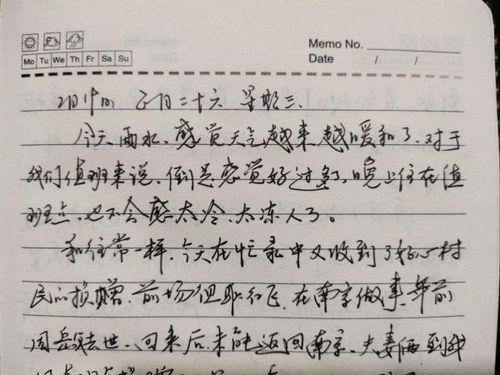 Memo No.
Mo Tu We Th Fr Sa Su
Date / /
2月19日 正月二十六 星期三
今天雨水,感觉天气越来越暖和了,对于
我们值班来说,倒是感觉好过多了,晚上住在值
班点,也不会感太冷,太冻人了。
和往常一样,今天在忙录中又收到了好心村
民的捐赠,前场组耿红飞,在南京做事,年前
因岳去世,回来后,未能返回南京,夫妻俩到我